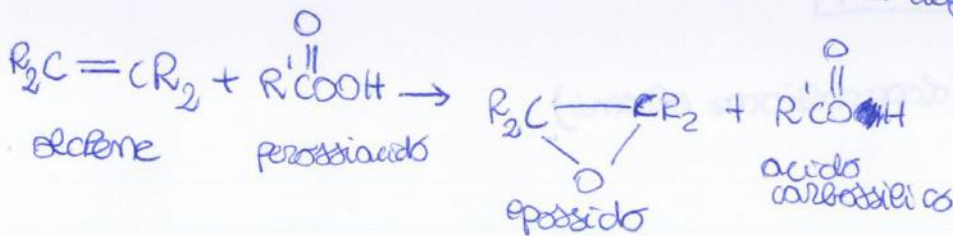 O O
R₂C=CR₂ + R'COOH → R₂C—CR₂ + R'COH
O
alchene perossiacido epossido acido
carbossilico